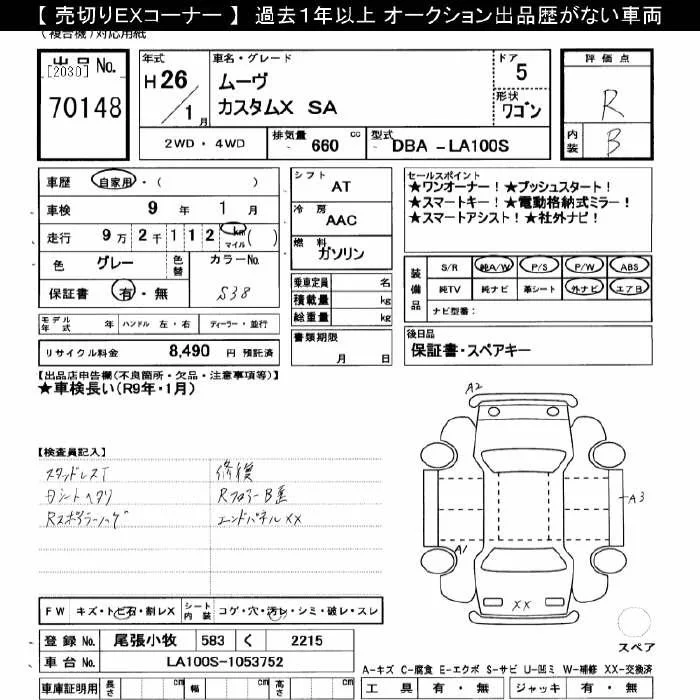 【 売切りEXコーナー 】 過去1年以上 オークション出品歴がない車両
(複合機)対応用紙
出品No.
[2030]
70148
年式
H 26
/1 月
車名・グレード
ムーヴ
カスタムX SA
ドア
5
形状
ワゴン
評価点
R
内装
B
2WD・4WD
排気量 660 cc
型式 DBA -LA100S
車歴 自家用・( )
車検 9 年 1 月
走行 9万 2千 1 1 2 km マイル ( )
色 グレー 色替 カラーNo.
保証書 有・無 S38
シフト AT
冷房 AAC
燃料 ガソリン
乗車定員 名
積載量 kg
総重量 kg
書類期限
月 日
セールスポイント
★ワンオーナー!★プッシュスタート!
★スマートキー!★電動格納式ミラー!
★スマートアシスト!★社外ナビ!
装備品
S/R 純A/W P/S P/W ABS
純TV 純ナビ 革シート 外ナビ エアB
ナビ型番:
モデル年式 年 ハンドル 左・右 ディーラー・並行
リサイクル料金 8,490 円 預託済
後日品
保証書・スペアキー
【出品店申告欄(不良箇所・欠品・注意事項等)】
★車検長い(R9年・1月)
【検査員記入】
スタッドレスT
修復
Rフロアー B歪
エンドパネル XX
A2
A3
A1
XX
スペア
FW キズ・トビ石・割レX シート内装 コゲ・穴・汚レ・シミ・破レ・スレ
登録 No. 尾張小牧 583 く 2215
車台 No. LA100S-1053752
A-キズ C-腐食 E-エクボ S-サビ U-凹ミ W-補修 XX-交換済
車庫証明用 長さ cm 幅 cm 高さ cm
工具 有・無 ジャッキ 有・無